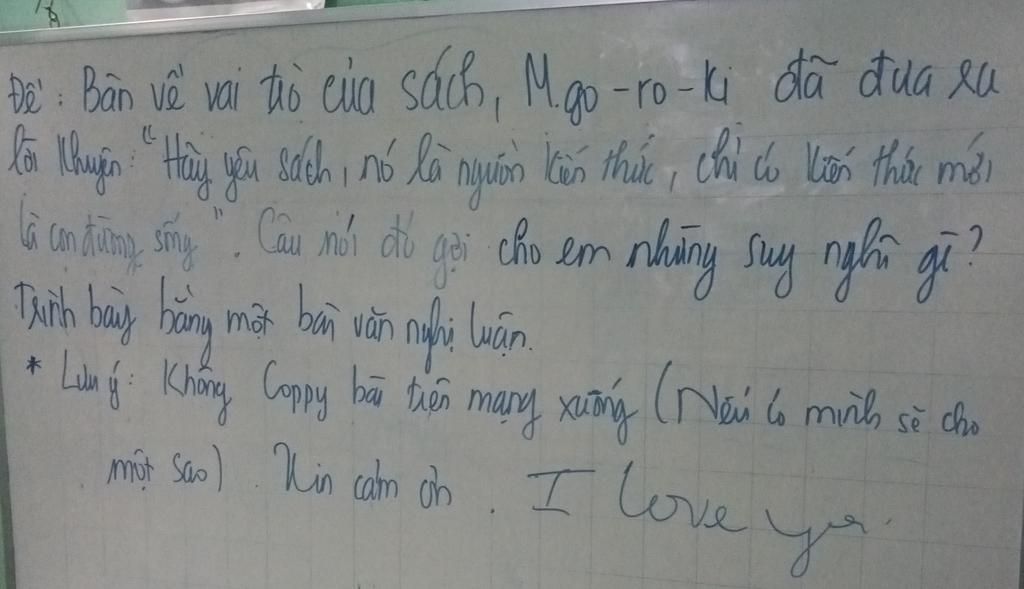 Đề: Bàn về vai trò của sách, M.go-ro-ki đã đưa ra
lời khuyên: "Hãy yêu sách, nó là nguồn kiến thức, chỉ có kiến thức mới
là con đường sống". Câu nói đó gợi cho em những suy nghĩ gì?
Trình bày bằng một bài văn nghị luận.
* Lưu ý: Không Coppy bài trên mạng xuống (Nếu có mình sẽ cho
một sao). Xin cảm ơn. I love you.